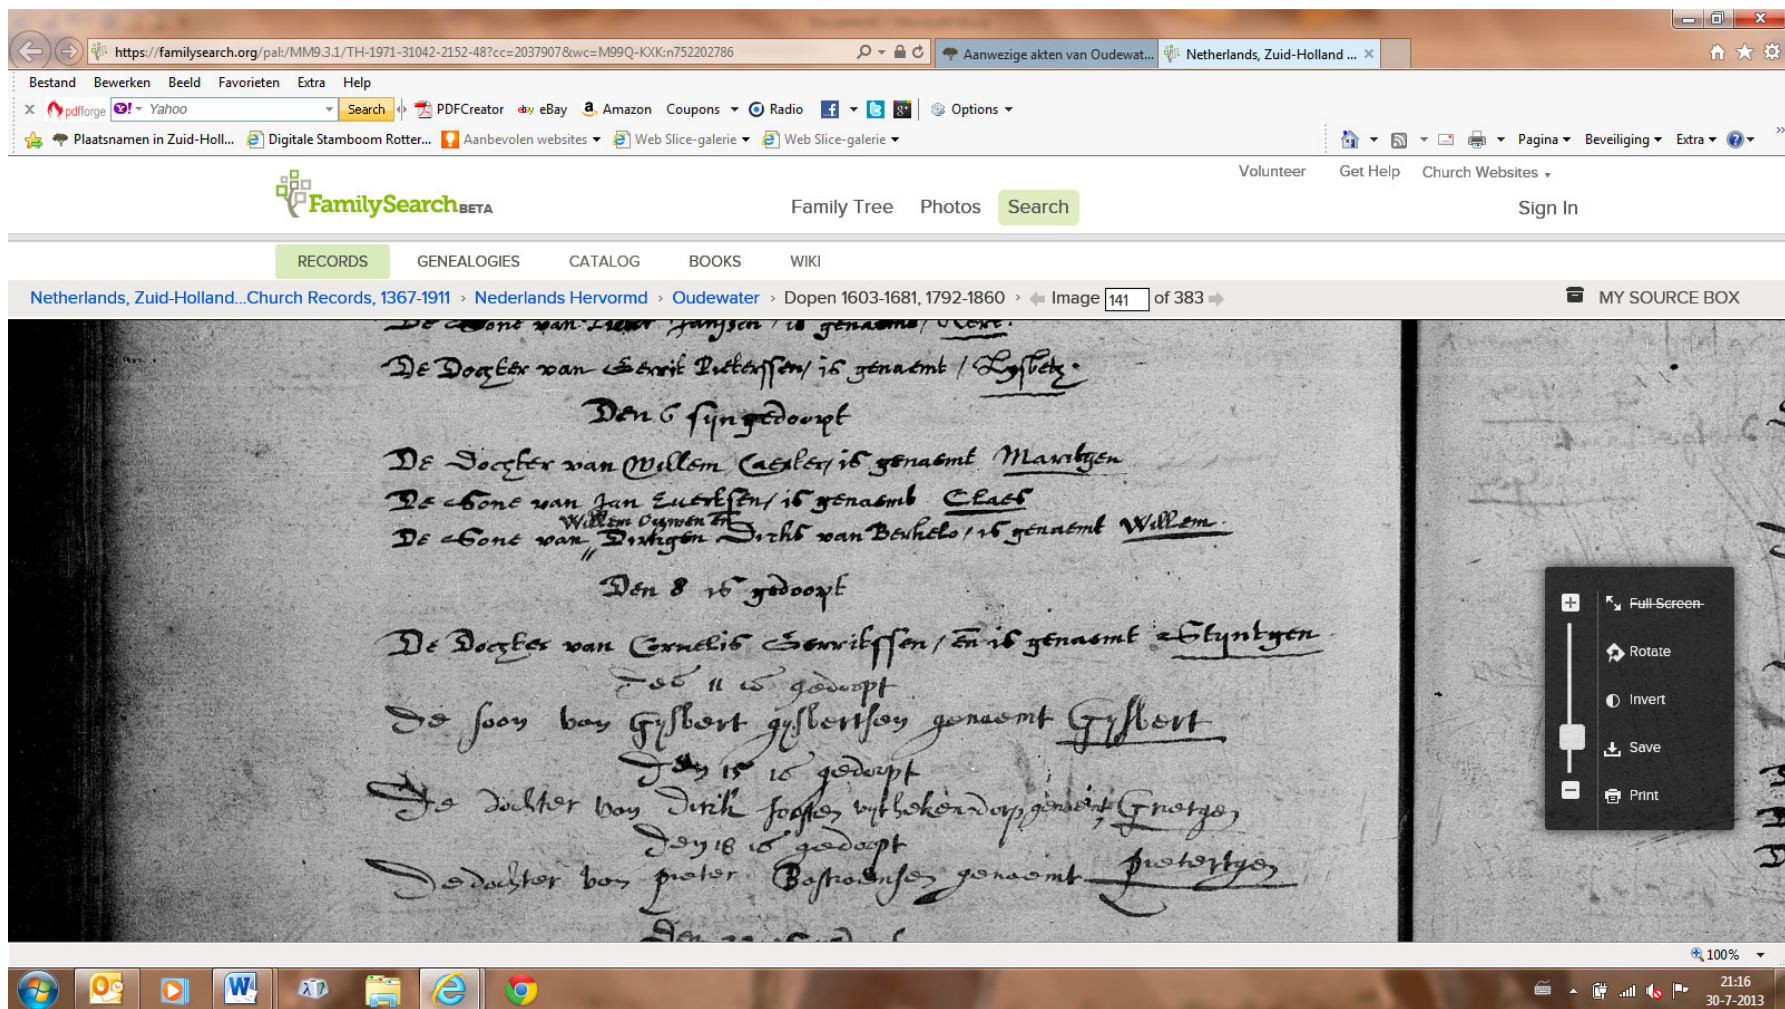 https://familysearch.org/pal:/MM9.3.1/TH-1971-31042-2152-48?cc=2037907&wc=M99Q-KXK:n752202786
Aanwezige akten van Oudewat...
Netherlands, Zuid-Holland ...
Bestand Bewerken Beeld Favorieten Extra Help
x pdfforge Y! Yahoo Search PDFCreator eBay Amazon Coupons Radio Options
Plaatsnamen in Zuid-Holl... Digitale Stamboom Rotter... Aanbevolen websites Web Slice-galerie Web Slice-galerie Pagina Beveiliging Extra
Volunteer Get Help Church Websites
FamilySearch BETA Family Tree Photos Search Sign In
RECORDS GENEALOGIES CATALOG BOOKS WIKI
Netherlands, Zuid-Holland...Church Records, 1367-1911 › Nederlands Hervormd › Oudewater › Dopen 1603-1681, 1792-1860 › Image 141 of 383
MY SOURCE BOX
De Sone van Janssen / is genaemt /
De Dochter van Gerrit Pieterssen / is genaemt / Lysbetg.
Den 6 sijn gedoopt
De Dochter van Willem is genaemt Maritgen
De Sone van Jan Evertsen / is genaemt Claes
Willem en
De Sone van Dirkgen Dirks van Berkelo / is genaemt Willem.
Den 8 is gedoopt
De Dochter van Cornelis Gerritssen / en is genaemt Styntgen
Den 11 is gedoopt
De soon van Gysbert gysbertsen genaemt Gysbert
Den 15 is gedoopt
De dochter van Dirck genaemt Grietgen
Den 18 is gedoopt
De dochter van pieter genaemt pietertgen
Full Screen
Rotate
Invert
Save
Print
100%
21:16
30-7-2013